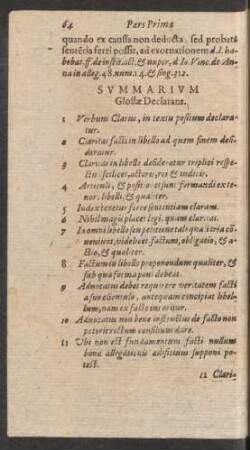 64 Pars Prima
quando ex caussa non deducta, sed probata
sentẽtia ferri possit, ad exornationem d.l. ha-
bebat. ff. de instit. act. & nuper, d Io. Vinc. de An-
na in alleg. 48. num. 14. & sing. 312.
SVMMARIVM
Glossæ Declarans.
1 Verbum Clarus, in textu positum declara-
tur.
2 Claritas facti in libello ad quem finem desi-
deratur.
3 Claritas in libello desideratur triplici respe-
ctu scilicet, actoris, rei & iudicis.
4 Articuli, & positiones sunt formandi ex te-
nor. libelli, & qualiter.
5 Iudex tenetur ferre sententiam claram.
6 Nihil magis placet legi, quam claritas.
7 In omni libello sen petitione tals qua tria cõ-
ueniunt, videlicet factum, obligatio, & a-
ctio, & qualiter.
8 Factum in libello proponendum qualiter, &
sub qua forma poni debeat.
9 Aduocatus debet requirere veritatem facti
a suo clientulo, antequam concipiat libel-
lum, nam ex facto ius oritur.
10 Aduocatus non bene instructus de facto non
poterit rectum consilium dare.
11 Vbi non est fundamentum facti nullum
bonæ allegationis ædificium supponi po-
test.
12 Clari-